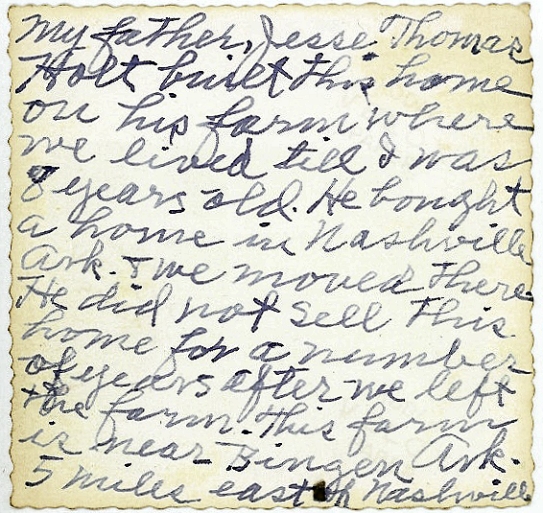 My father, Jesse Thomas
Holt built this home
on his farm where
we lived till I was
8 years old. He bought
a home in Nashville
Ark. & we moved there
He did not sell this
home for a number
of years after we left
the farm. This farm
is near Bingen Ark.
5 miles east of Nashville